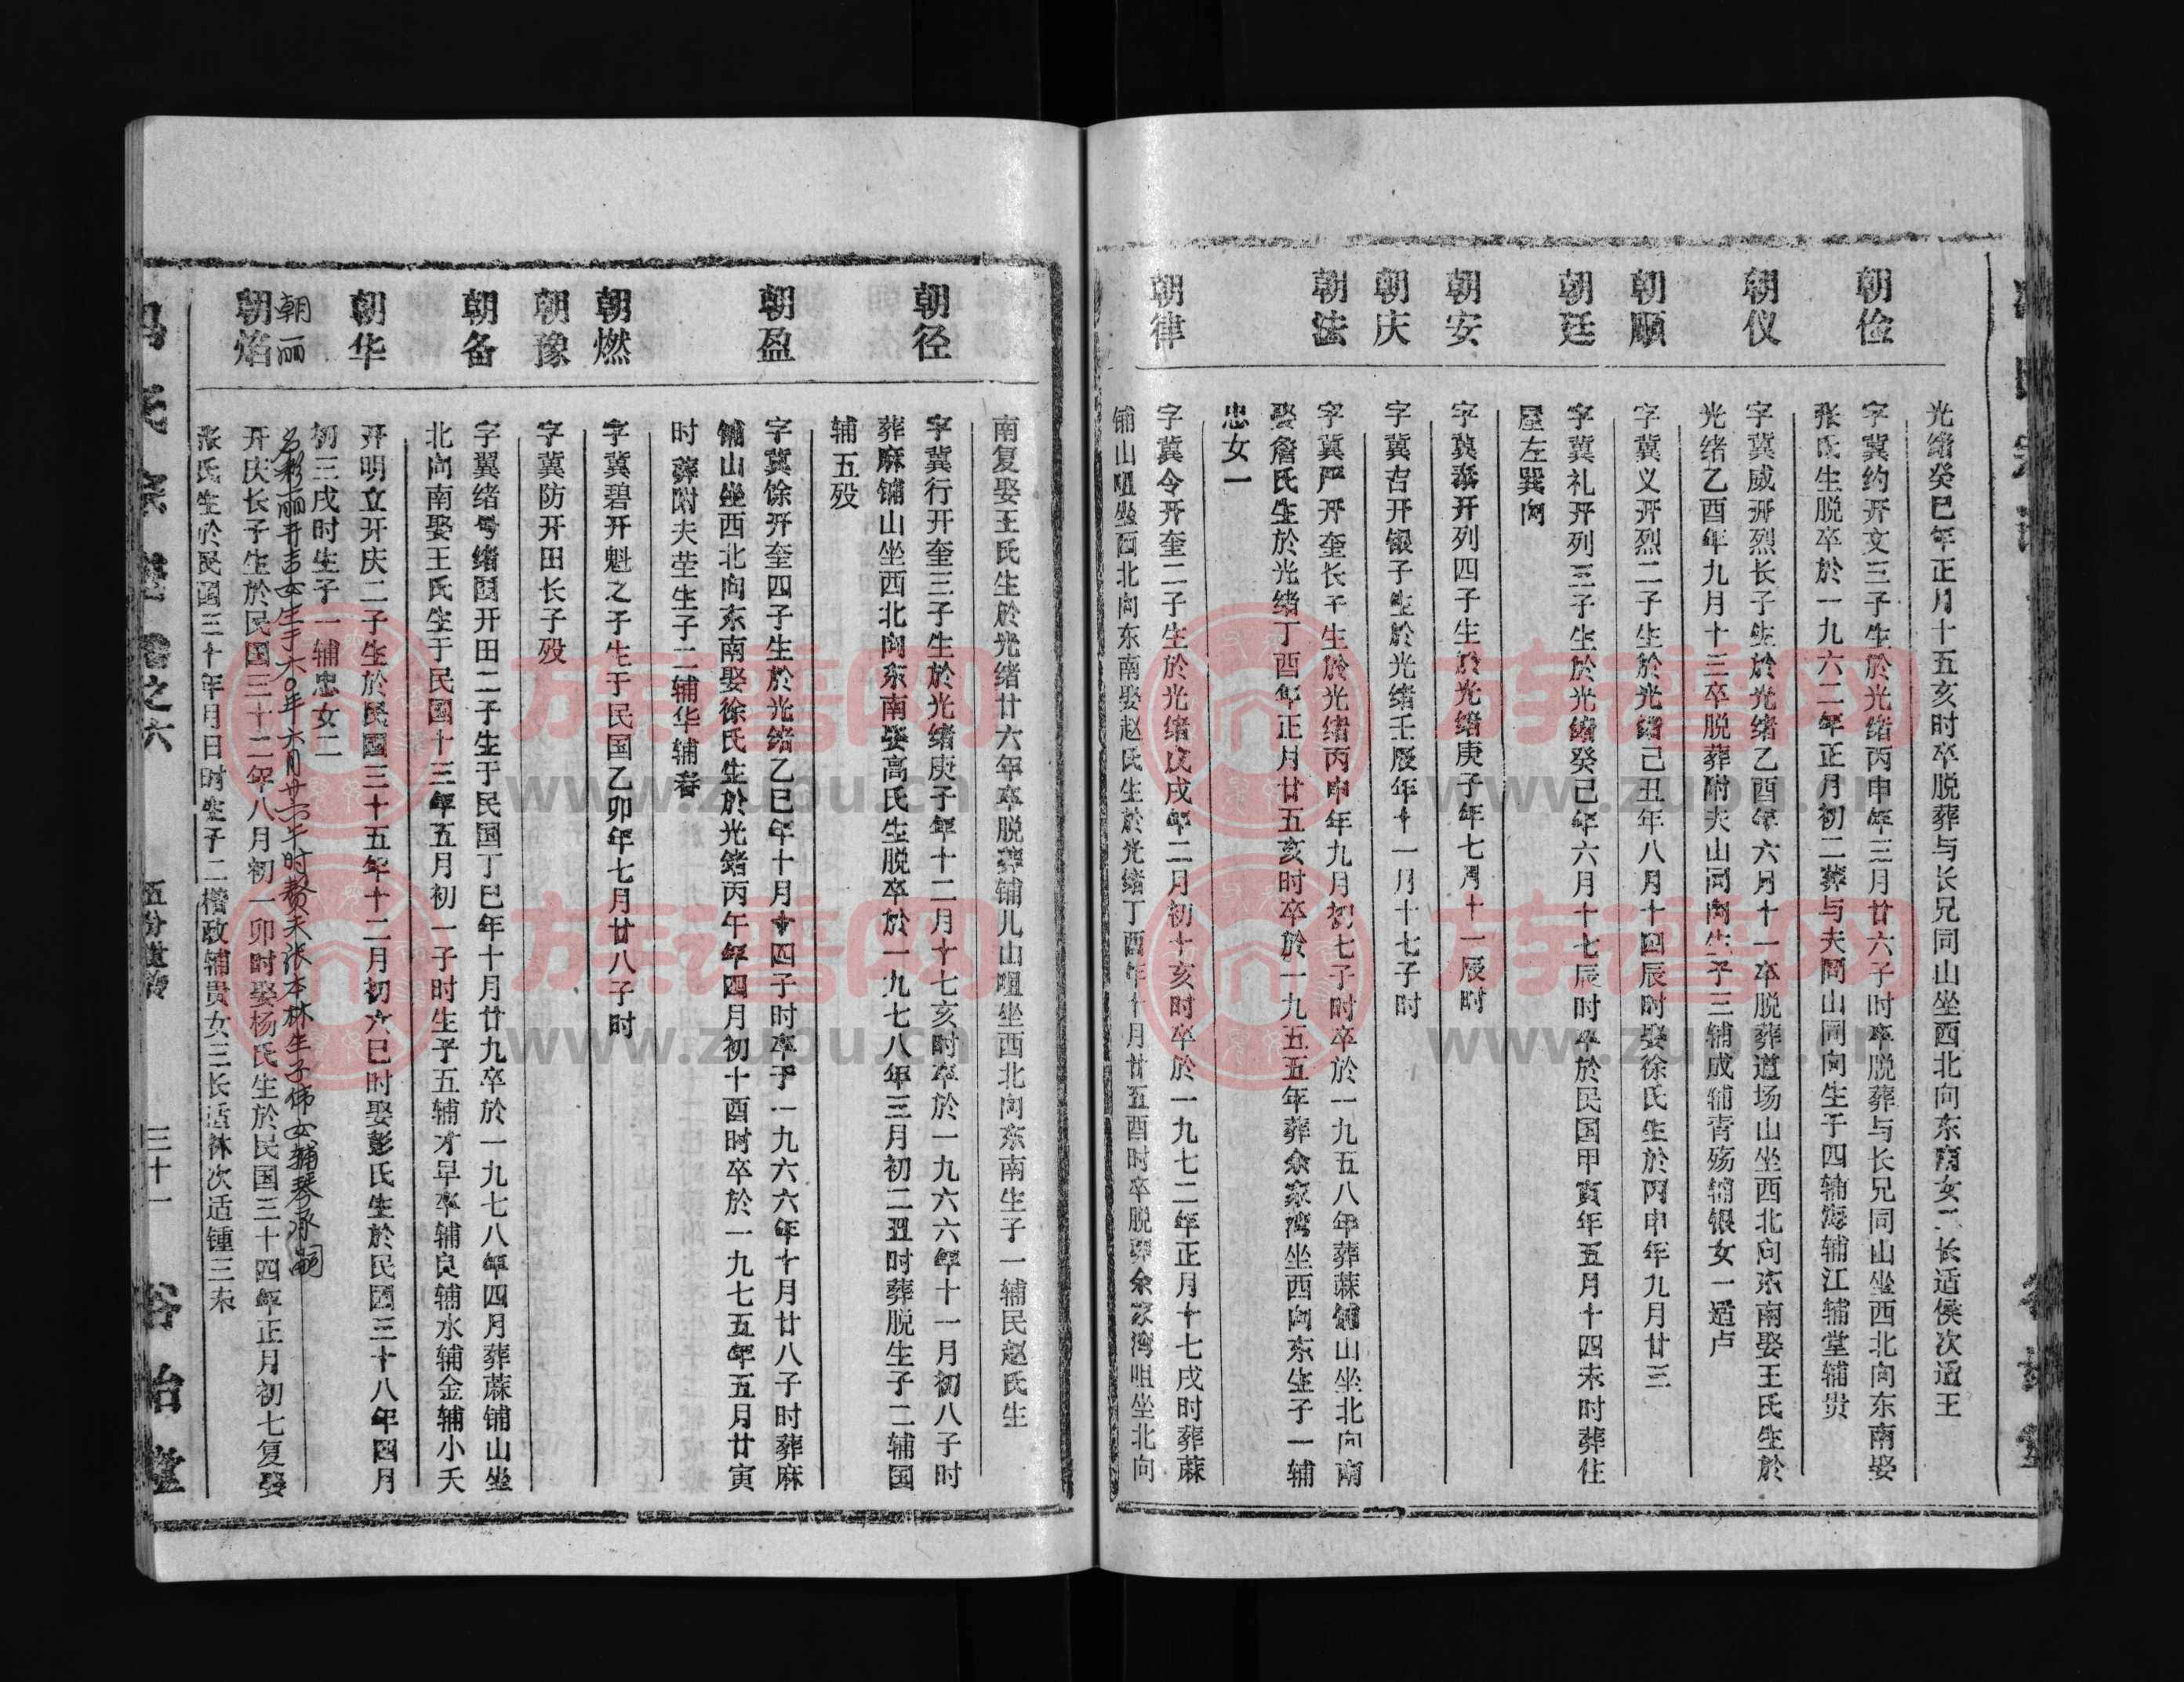 光绪癸巳年正月十五亥时卒脱葬与长兄同山坐西北向东南女二长适侯次适王
朝俭
字冀约开文三子生於光绪丙申年三月廿六子时卒脱葬与长兄同山坐西北向东南娶
张氏生脱卒於一九六二年正月初二葬与夫同山同向生子四辅海辅江辅堂辅贵
朝仪
字冀威开烈长子生於光绪乙酉年六月十一卒脱葬道场山坐西北向东南娶王氏生於
光绪乙酉年九月十三卒脱葬附夫山同向生子三辅成辅青殇辅银女一适卢
朝顺
字冀义开烈二子生於光绪己丑年八月十四辰时娶徐氏生於丙申年九月廿三
朝廷
字冀礼开列三子生於光绪癸己年六月十七辰时卒於民国甲寅年五月十四未时葬住
屋左巽向
朝安
字冀泰开列四子生於光绪庚子年七月十一辰时
朝庆
字冀吉开银子生於光绪壬辰年十一月十七子时
朝法
字冀严开奎长子生於光绪丙申年九月初七子时卒於一九五八年葬蔴铺山坐北向南
娶詹氏生於光绪丁酉年正月廿五亥时卒於一九五五年葬余家湾坐西向东生子一辅
忠女一
朝律
字冀令开奎二子生於光绪戊戌年二月初十亥时卒於一九七二年正月十七戌时葬蔴
铺山咀坐西北向东南娶赵氏生於光绪丁酉年十月廿五酉时卒脱葬余家湾咀坐北向
南复娶王氏生於光绪廿六年卒脱葬辅儿山咀坐西北向东南生子一辅民赵氏生
朝径
字冀行开奎三子生於光绪庚子年十二月十七亥时卒於一九六六年十一月初八子时
葬麻铺山坐西北向东南娶高氏生脱卒於一九七八年三月初二丑时葬脱生子二辅国
辅五殁
朝盈
字冀馀开奎四子生於光绪乙巳年十月十四子时卒于一九六六年十月廿八子时葬麻
铺山坐西北向东南娶徐氏生於光绪丙午年四月初十酉时卒於一九七五年五月廿寅
时葬附夫茔生子二辅华辅春
朝燃
字冀碧开魁之子生于民国乙卯年七月廿八子时
朝豫
字冀防开田长子殁
朝备
字翼绪号绪颐开田二子生于民国丁巳年十月廿九卒於一九七八年四月葬蔴铺山坐
北向南娶王氏生于民国十三年五月初一子时生子五辅才早卒辅良辅水辅金辅小夭
朝华
开明立开庆二子生於民国三十五年十二月初六巳时娶彭氏生於民国三十八年四月
初三戌时生子一辅忠女二
朝丽
名彩丽开吉女生于六〇年六月廿六午时赘夫张本林生子伟女辅琴承嗣
朝焰
开庆长子生於民国三十二年八月初一卯时娶杨氏生於民国三十四年正月初七复娶
张氏生於民国三十年月日时生子二楷政辅贵女三长适林次适锺三未
氏宗谱卷之六
五份世传
三十一
裕怡堂
族谱网
www.zupu.cn
族谱网
www.zupu.cn
族谱网
www.zupu.cn
族谱网
www.zupu.cn